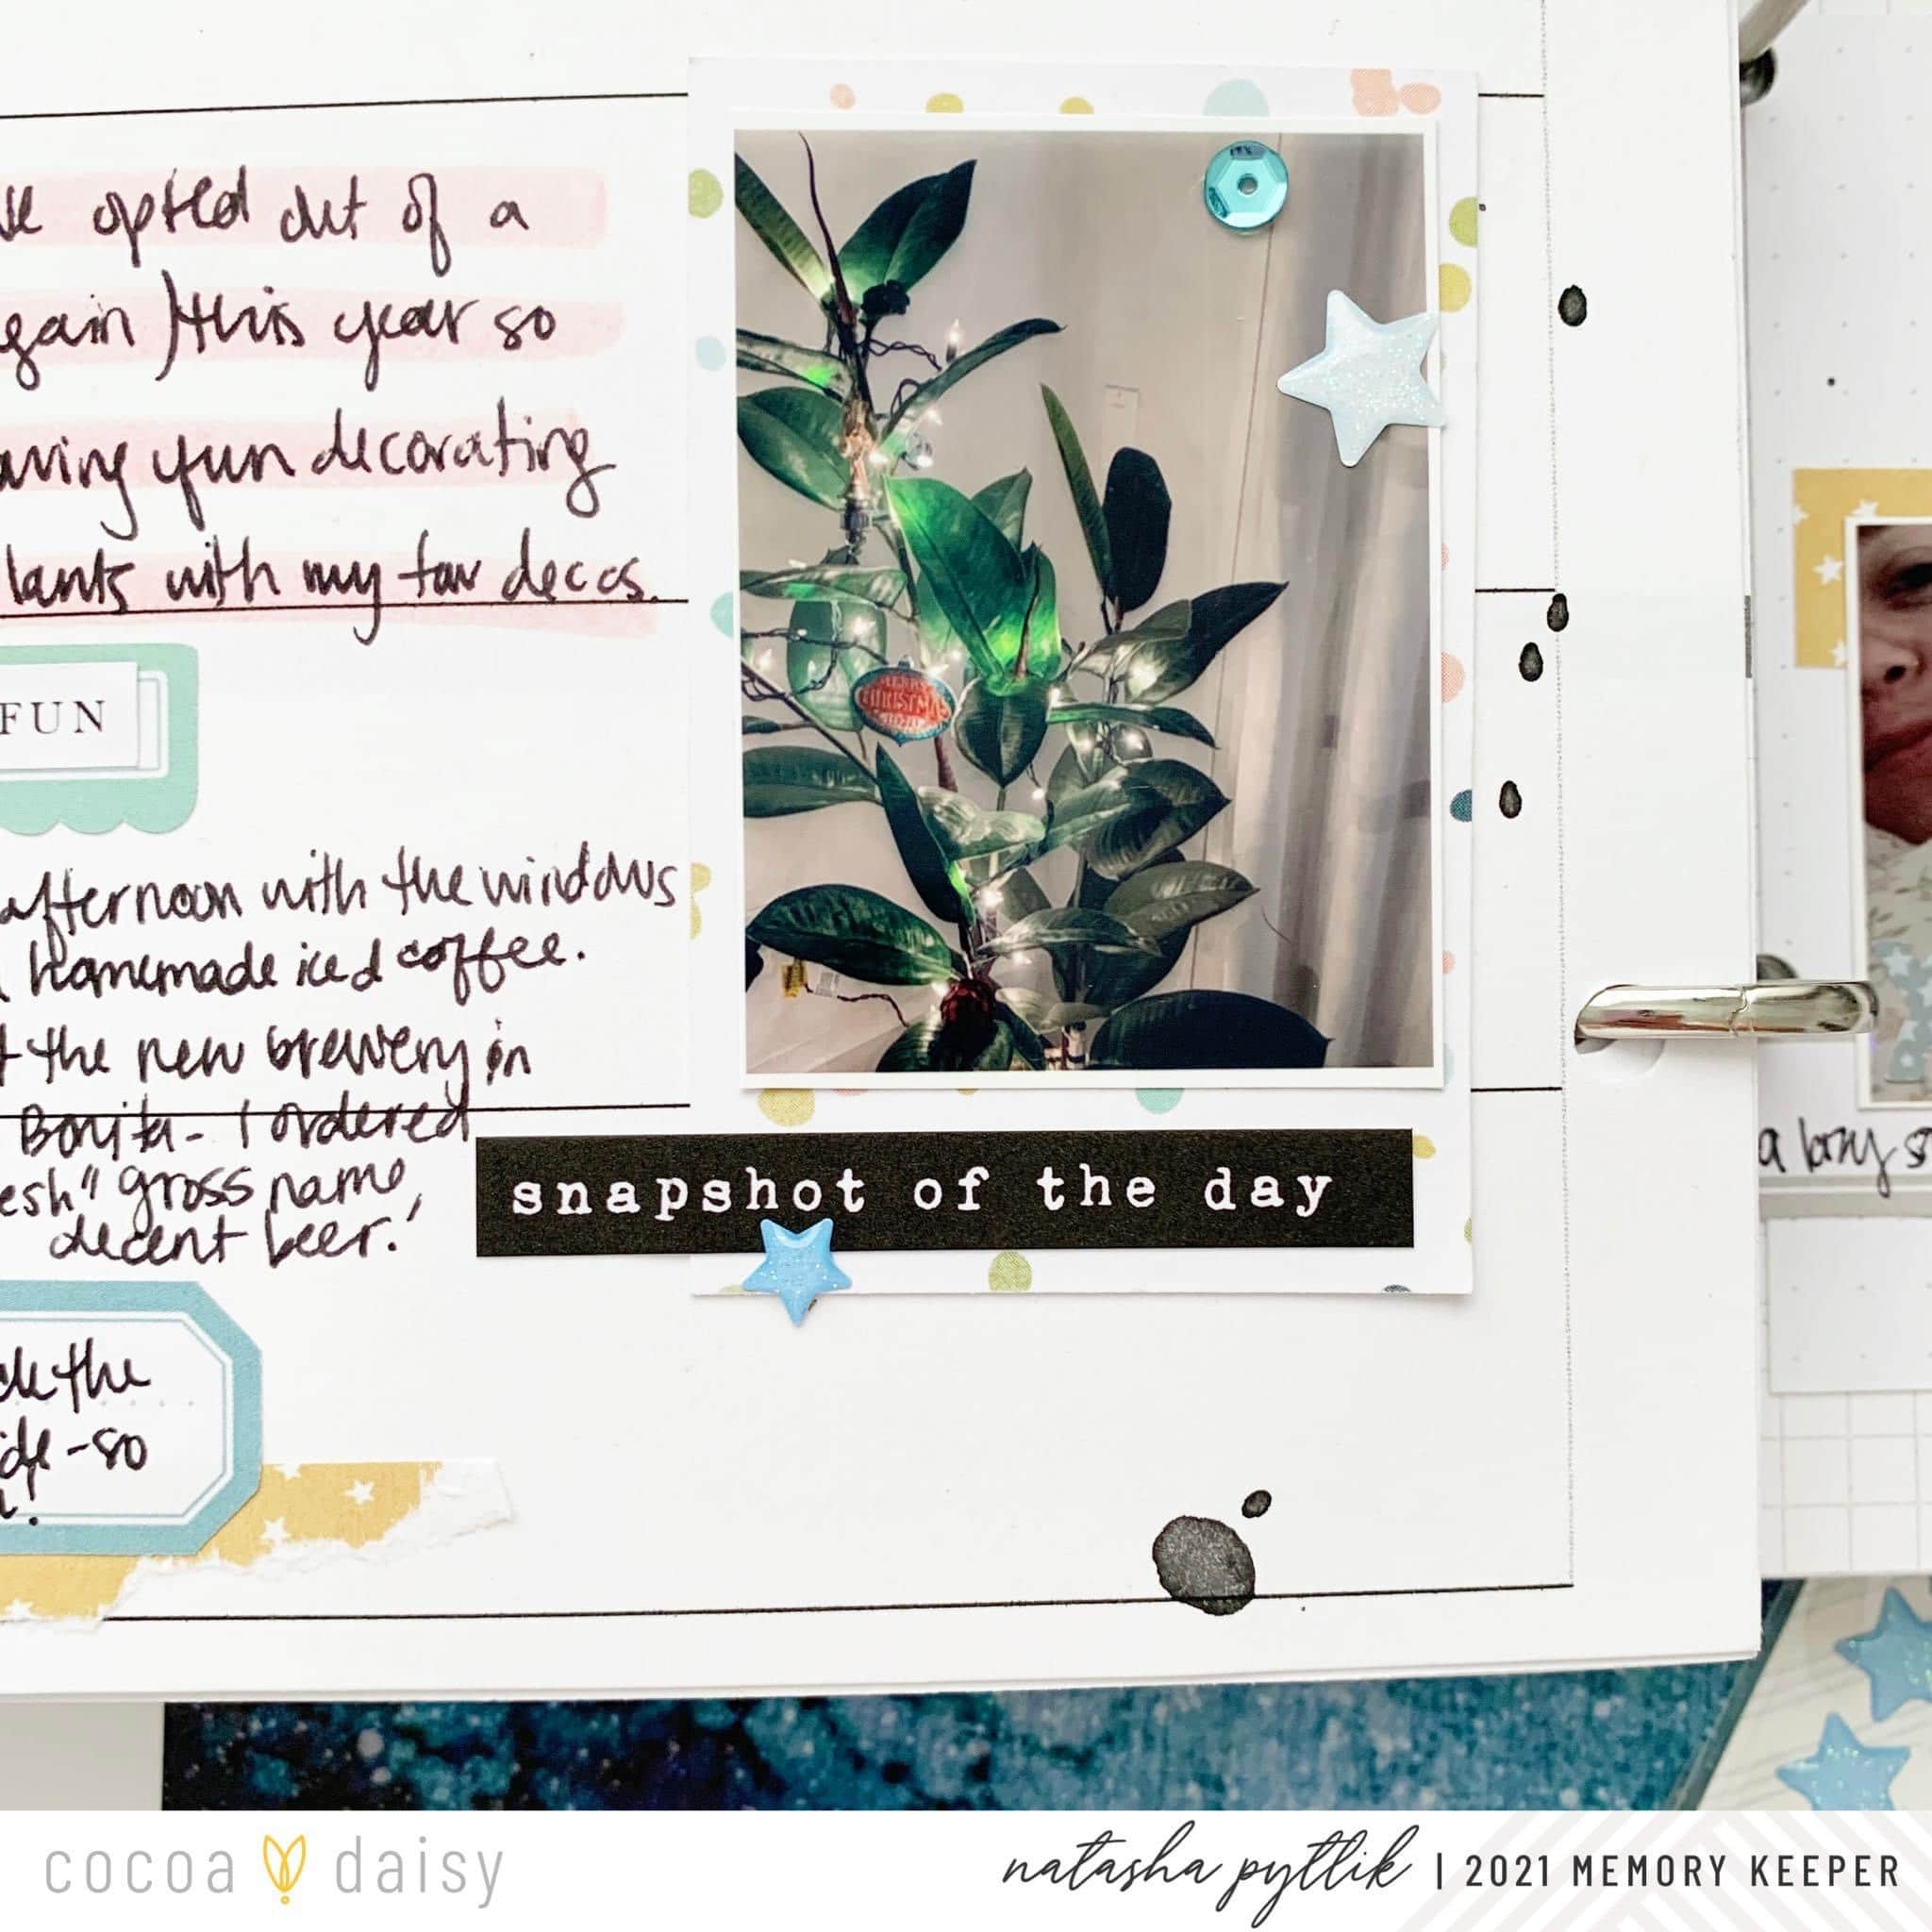 opted out of a
gain) this year so
aving fun decorating
lants with my fav decos.
FUN
afternoon with the windows
homemade iced coffee.
the new brewery in
Bonita - I ordered
esh" gross name,
decent beer!
MERRY
CHRISTMAS
snapshot of the day
the
ide - so
a long s
cocoa daisy
natasha pyttlik | 2021 MEMORY KEEPER